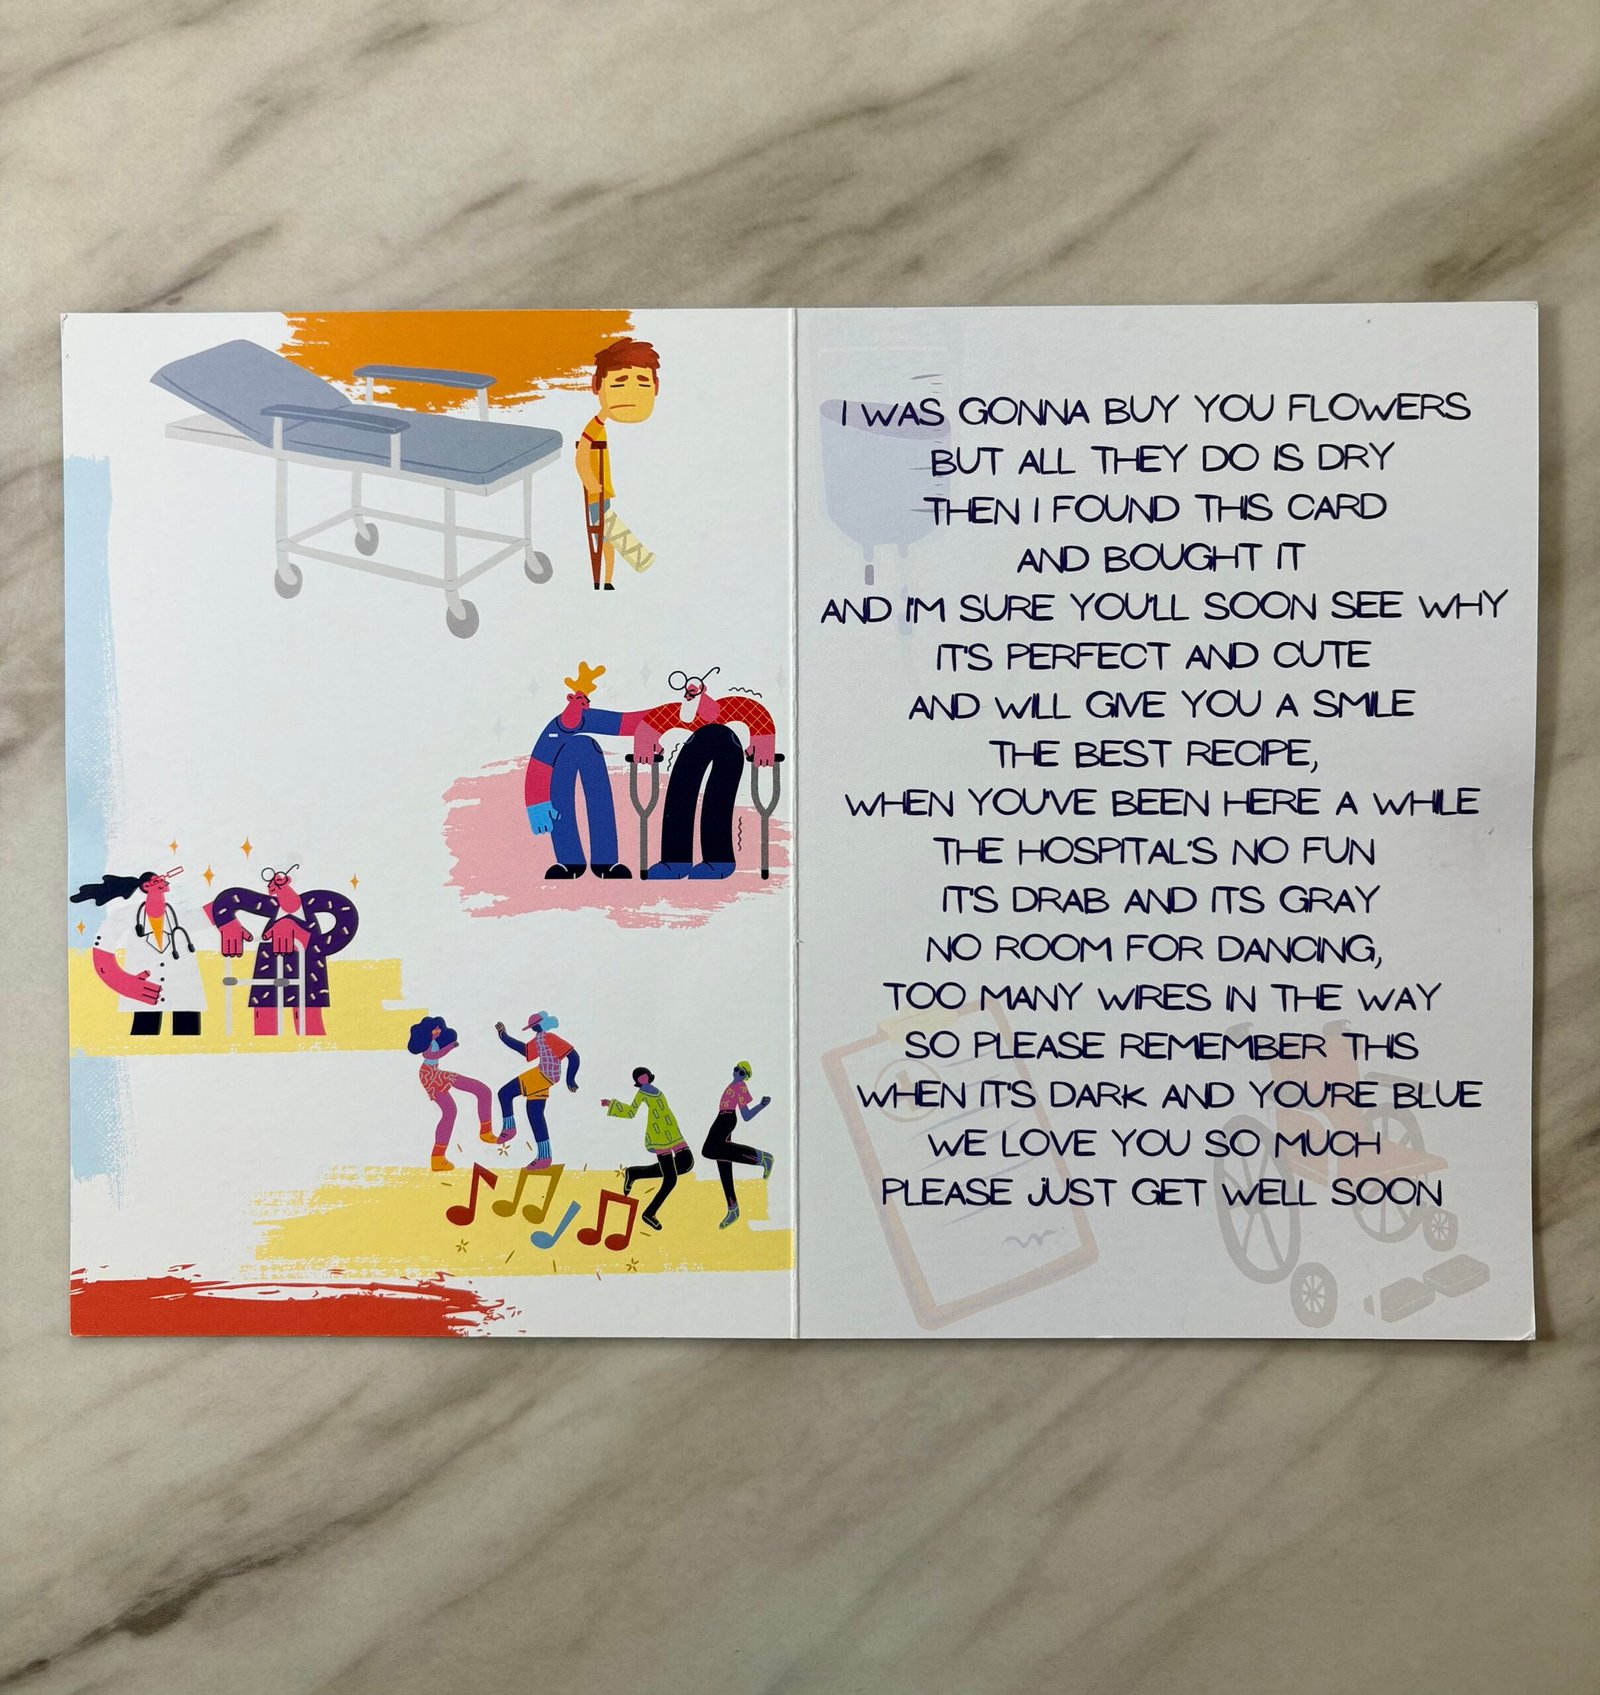 I WAS GONNA BUY YOU FLOWERS
BUT ALL THEY DO IS DRY
THEN I FOUND THIS CARD
AND BOUGHT IT
AND I'M SURE YOU'LL SOON SEE WHY
IT'S PERFECT AND CUTE
AND WILL GIVE YOU A SMILE
THE BEST RECIPE,
WHEN YOU'VE BEEN HERE A WHILE
THE HOSPITAL'S NO FUN
IT'S DRAB AND ITS GRAY
NO ROOM FOR DANCING,
TOO MANY WIRES IN THE WAY
SO PLEASE REMEMBER THIS
WHEN IT'S DARK AND YOU'RE BLUE
WE LOVE YOU SO MUCH
PLEASE JUST GET WELL SOON